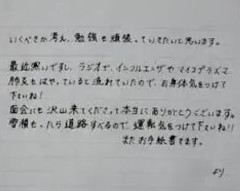 いくべきか考え、勉強を頑張っていきたいと思います。
最近寒いですし、ラジオで、インフルエンザや マイコプラズマ
肺炎もはやっていると流れていたので、お身体気をつけて
下さいね!
面会にも 沢山来てくださって本当にありがとうございます。
雪積もったら道路すべるので、運転気をつけて下さいね!!
また お手紙書きます。
より